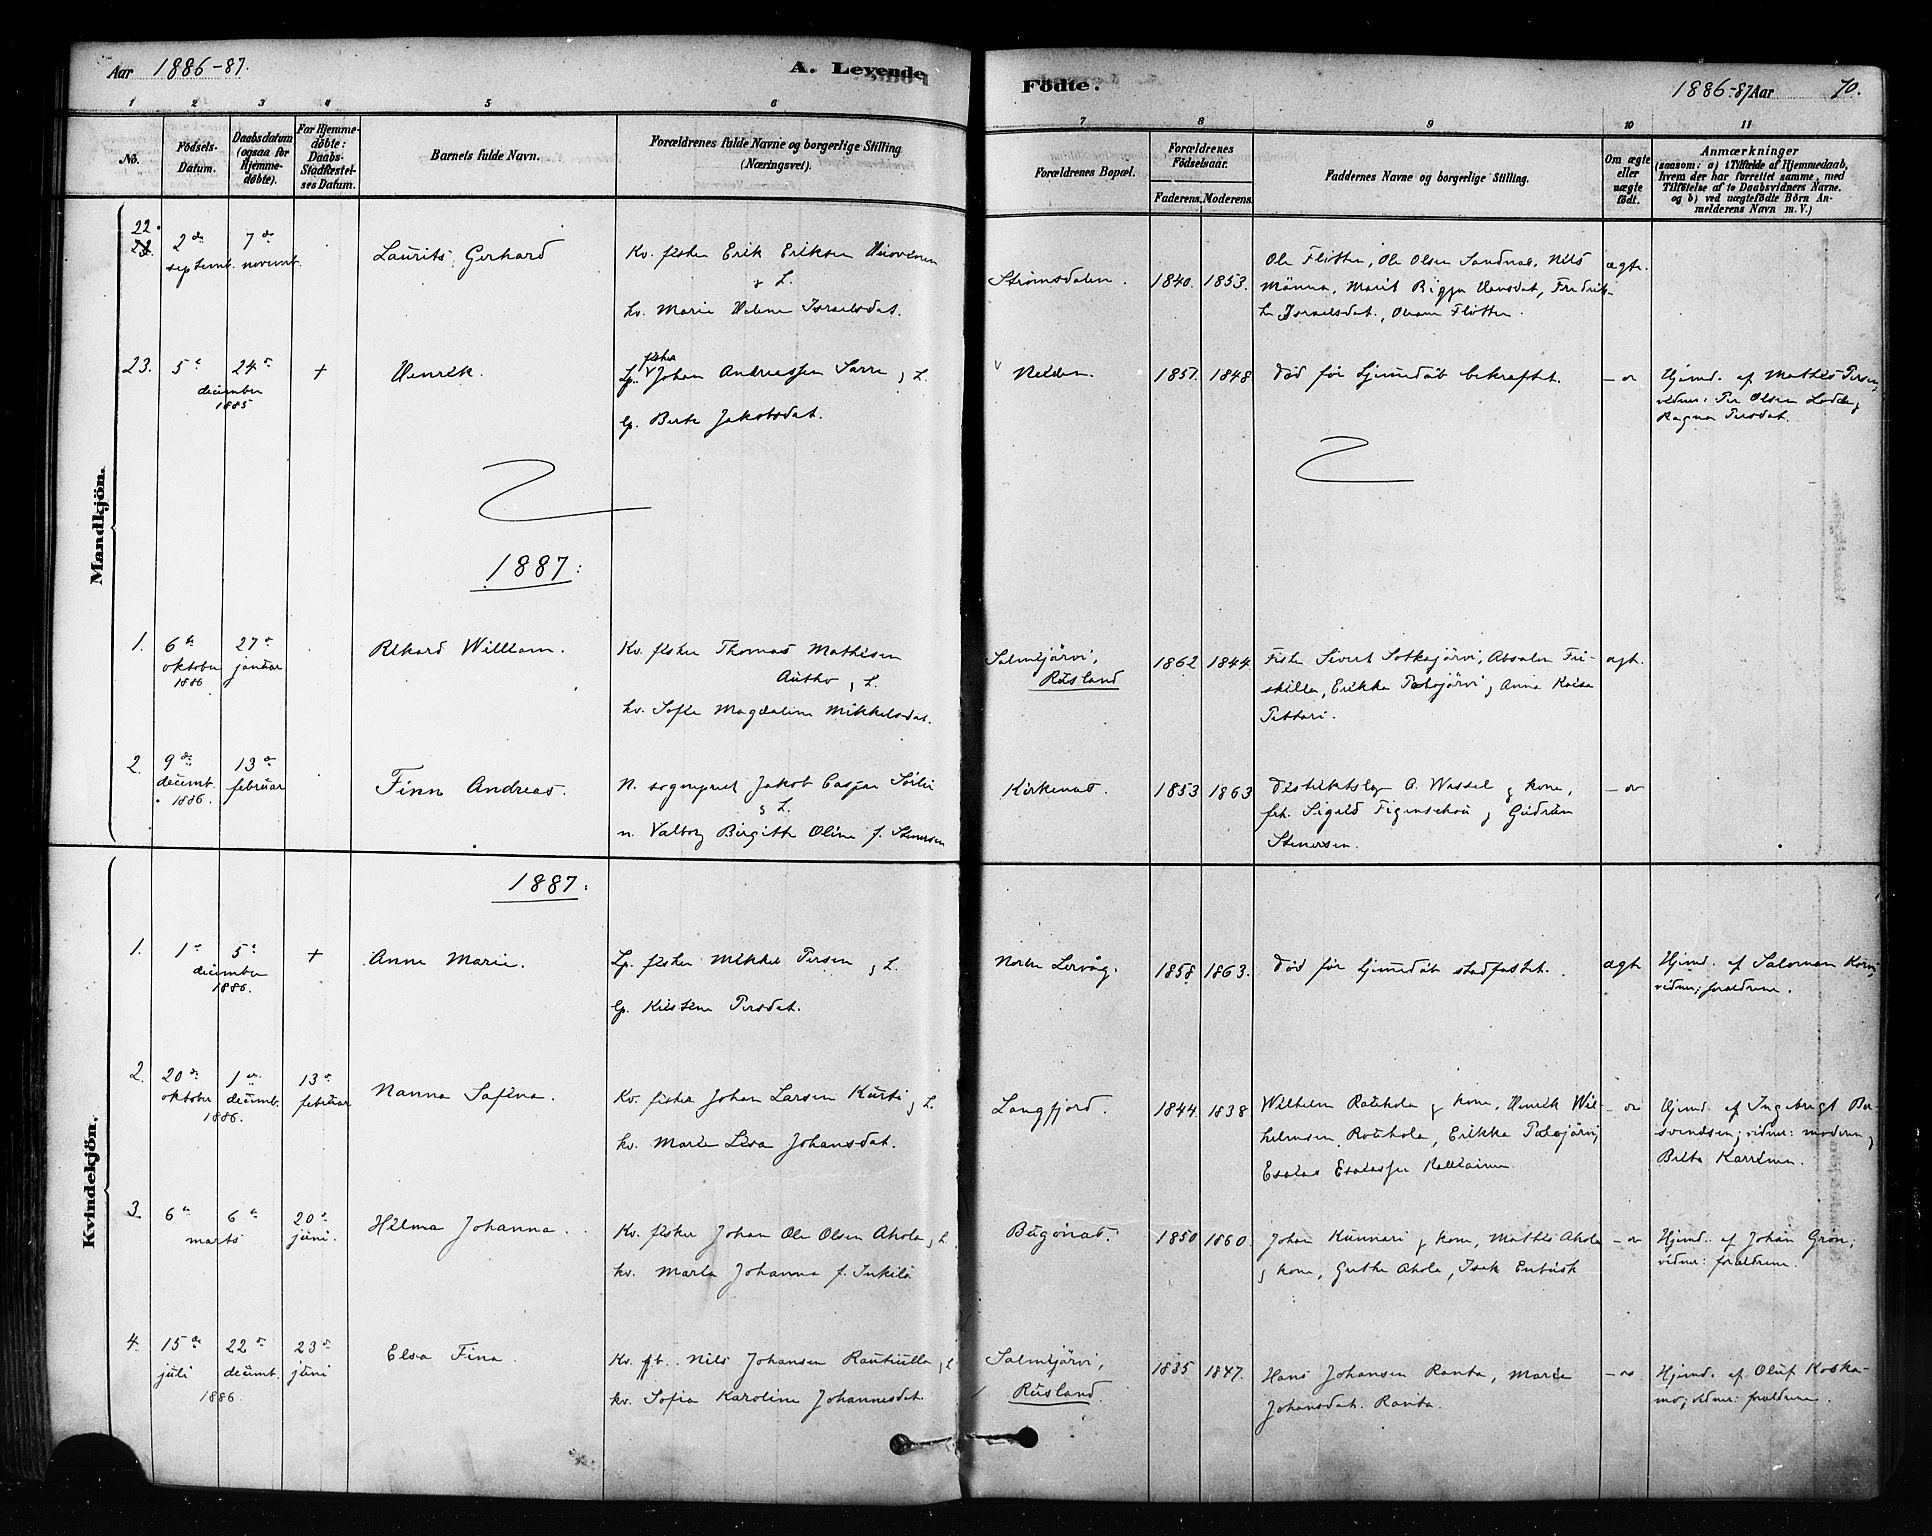 Aar 1886-87.
A. Levende
Födte.
1886-87 Aar
70.
1 2 3 4 5 6 7 8 9 10 11
No.
Födsels-
Datum.
Daabsdatum
(ogsaa for
Hjemme-
døbte).
For Hjemme-
døbte:
Daabs-
Stadfæstel-
ses Datum.
Barnets fulde Navn.
Forældrenes fulde Navne og borgerlige Stilling
(Næringsvei).
Forældrenes Bopæl.
Forældrenes
Födselsaar.
Faderens. Moderens.
Faddernes Navne og borgerlige Stilling.
Om ægte
eller
uægte
født.
Anmærkninger
(saasom: a) i Tilfælde af Hjemmedaab,
hvem der har forrettet samme, med
Tilföielse af to Daabsvidners Navne.
og b) ved uægtefödte Börn An-
melderens Navn m. V.)
Mandkjön.
22.
2 de septemb.
7 de novemb.
Laurits Gerhard
Kv. fisker Erik Eriksen
& L.
kv. Marie Helene Israelsdat.
Strömsdalen.
1840. 1853.
Ole Flotten, Ole Olsen Sandnæs, Nils
Männa, Marit Bigga Hansdat, Fredrik-
ke Israelsdat.,
ægte.
23.
5 te
24 de
december
1885
+
Henrik.
Lp. fisker Johan Andreassen Sarre & L.
lp. Berte Jakobsdat.
Neiden.
1851. 1848
Död för hjemmedåb bekræftet.
Hjemd. af Mathis Persen,
vidner: Per Olsen Ladde &
Ragna Persdat.
1887:
1.
6 te
oktober
1886
27 de
januar
Rikard William.
Kv. fisker Thomas Mathisen
Autho & L.
kv. Sofie Magdalene Mikkelsdat.
Salmijärvi,
Rusland
1862 1844
Fisker Sivert Sotkajärvi, Absalon Fri-
Erikka Palojärvi & Anna Kaisa
Pettari.
ægt.
2.
9 de
decemb.
1886.
13 de
februar
Finn Andreas.
N. sogneprest Jakob Caspar Sörlie
& L.
n. Valborg Birgitte Oline f. Stenersen
Kirkenæs.
1853 1863
Distriktslæg A. Wessel & kone,
frk. Sigrid Figenschou & Gudrun
Stenersen.
Kvindekjön.
1887:
1.
1 te
5 te
december
1886.
+
Anne Marie.
Lp. fisker Mikkel Persen & L.
lp. Kristine Persdat.
Nordre Leirvåg.
1858 1863.
Död för hjemmedåb stadfæstet.
ægt.
Hjemd. af Salomon
vidner; forældrene.
2.
20 de
oktober
1 te
decemb.
1886.
13 de
februar
Nanna Safina.
Kv. fisker Johan Larsen Kurti & L.
kv. Marie Lisa Johansdat.
Langfjord.
1844 1838
Wilhelm Rauhala & kone, Henrik Wil-
helmsen Rouhala, Erikka Palojärvi,
Esaias Esaiassen
Hjemd. af Ingebrigt Ber-
svendsen; vidner: moderen &
Brita Karrinen.
3.
6 te
6 te
marts
20 de
juni.
Hilma Johanna.
Kv. fisker Johan Ole Olsen Ahola & L.
kv. Maria Johanna f. Inkilä
Bugönæs.
1850 1860.
Johan Kunnari & kone, Mathis Ahola
& kone, Grethe Ahola, Isak
Hjemd. af Johan Gron;
vidner: forældrene.
4.
15 de
juli
22 de
decemb.
1886
23 de
juni
Elsa Fina.
Kv. fb. Nils Johansen Rautiulla & L.
kv. Sofia Karoline Johannesdat.
Salmijärvi,
Rusland
1835 1847.
Hans Johansen Ranta, Marie
Johansdat. Ranta.
Hjemd. af Oluf Koska-
mo; vidner: forældrene.